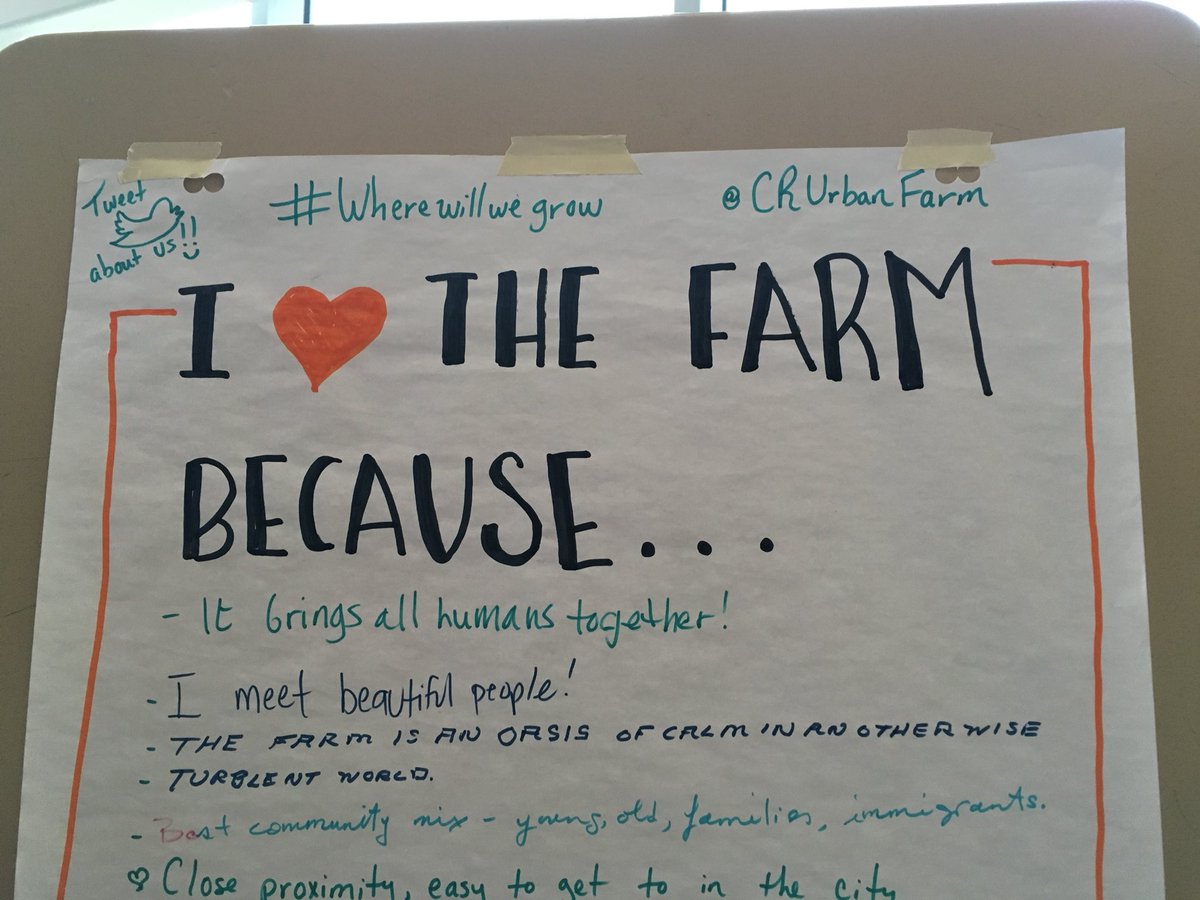 Tweet
about us!!
#Wherewillwegrow
@CRUrbanFarm
I ♥ THE FARM
BECAUSE...
- It brings all humans together!
- I meet beautiful people!
- THE FARM IS AN OASIS OF CALM IN AN OTHERWISE
- TURBLENT WORLD.
- Best community mix - young, old, families, immigrants.
♡ Close proximity, easy to get to in the city